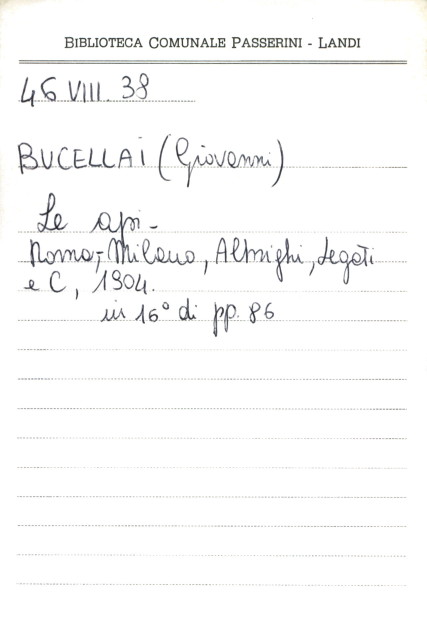 BIBLIOTECA COMUNALE PASSERINI - LANDI
46 VIII. 38
BUCELLAI (Giovanni)
Le api -
Roma-Milano, Albrighi, Segati
e C, 1904.
in 16° di pp. 86